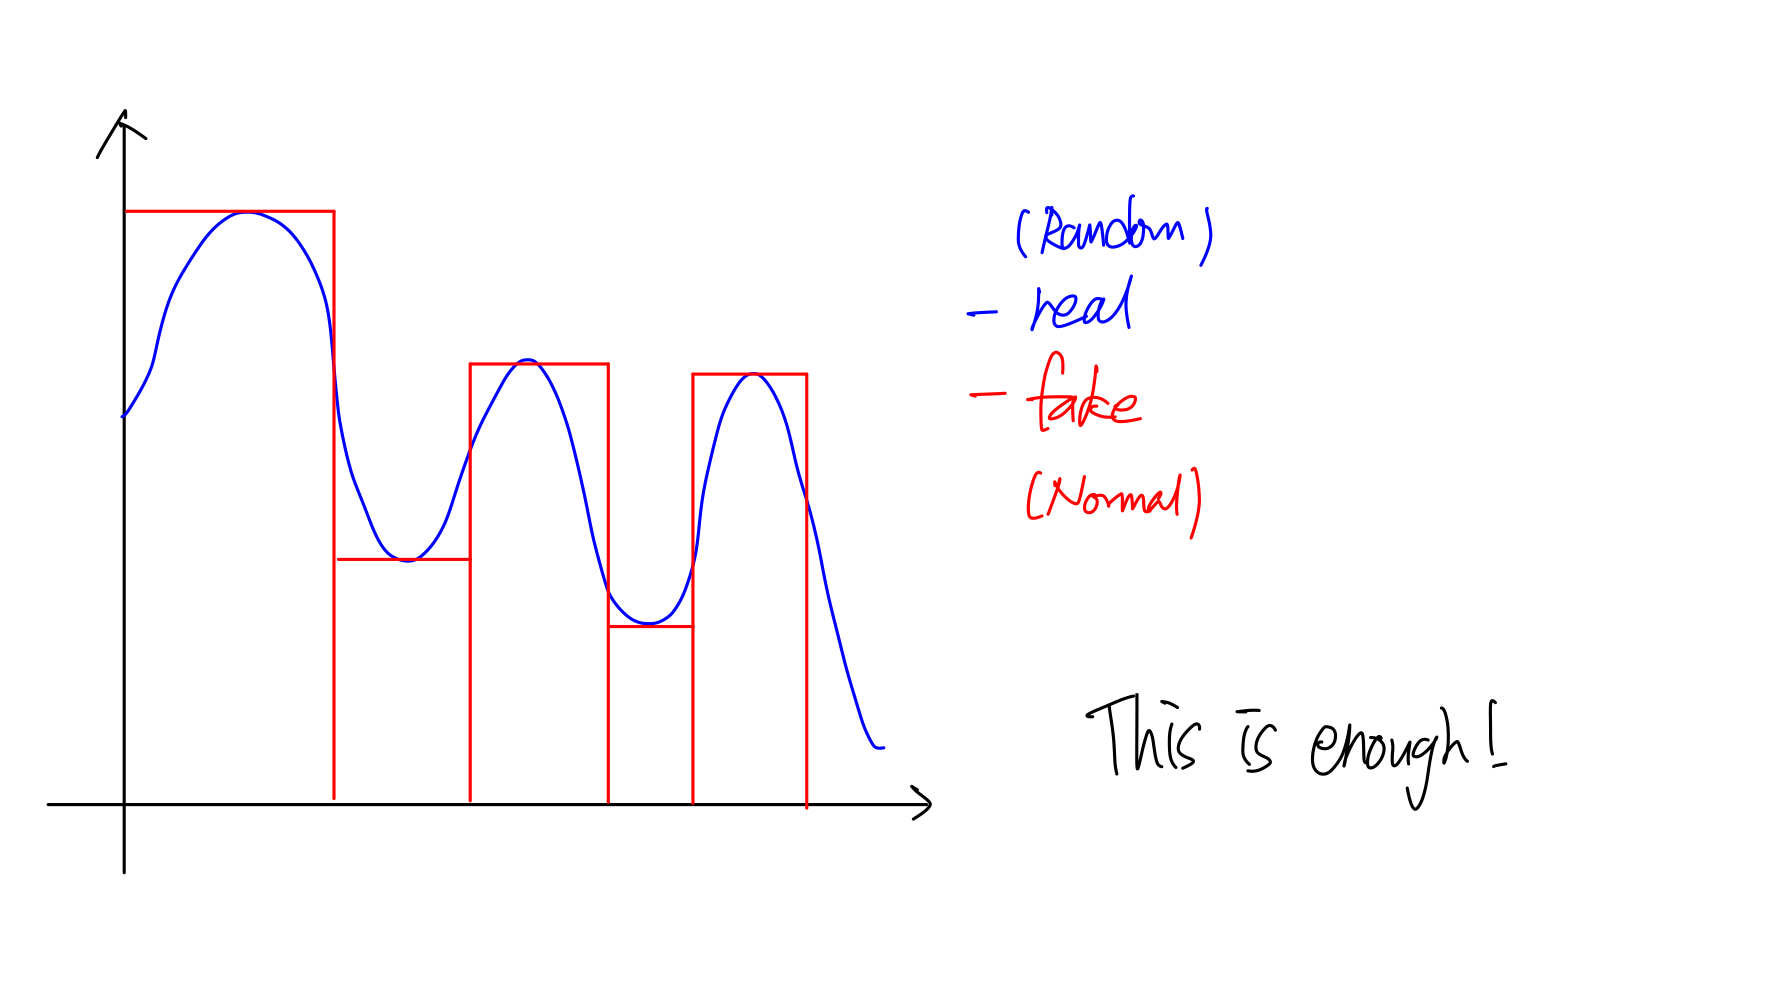 (Random)
- real
- fake
(Normal)
This is enough!